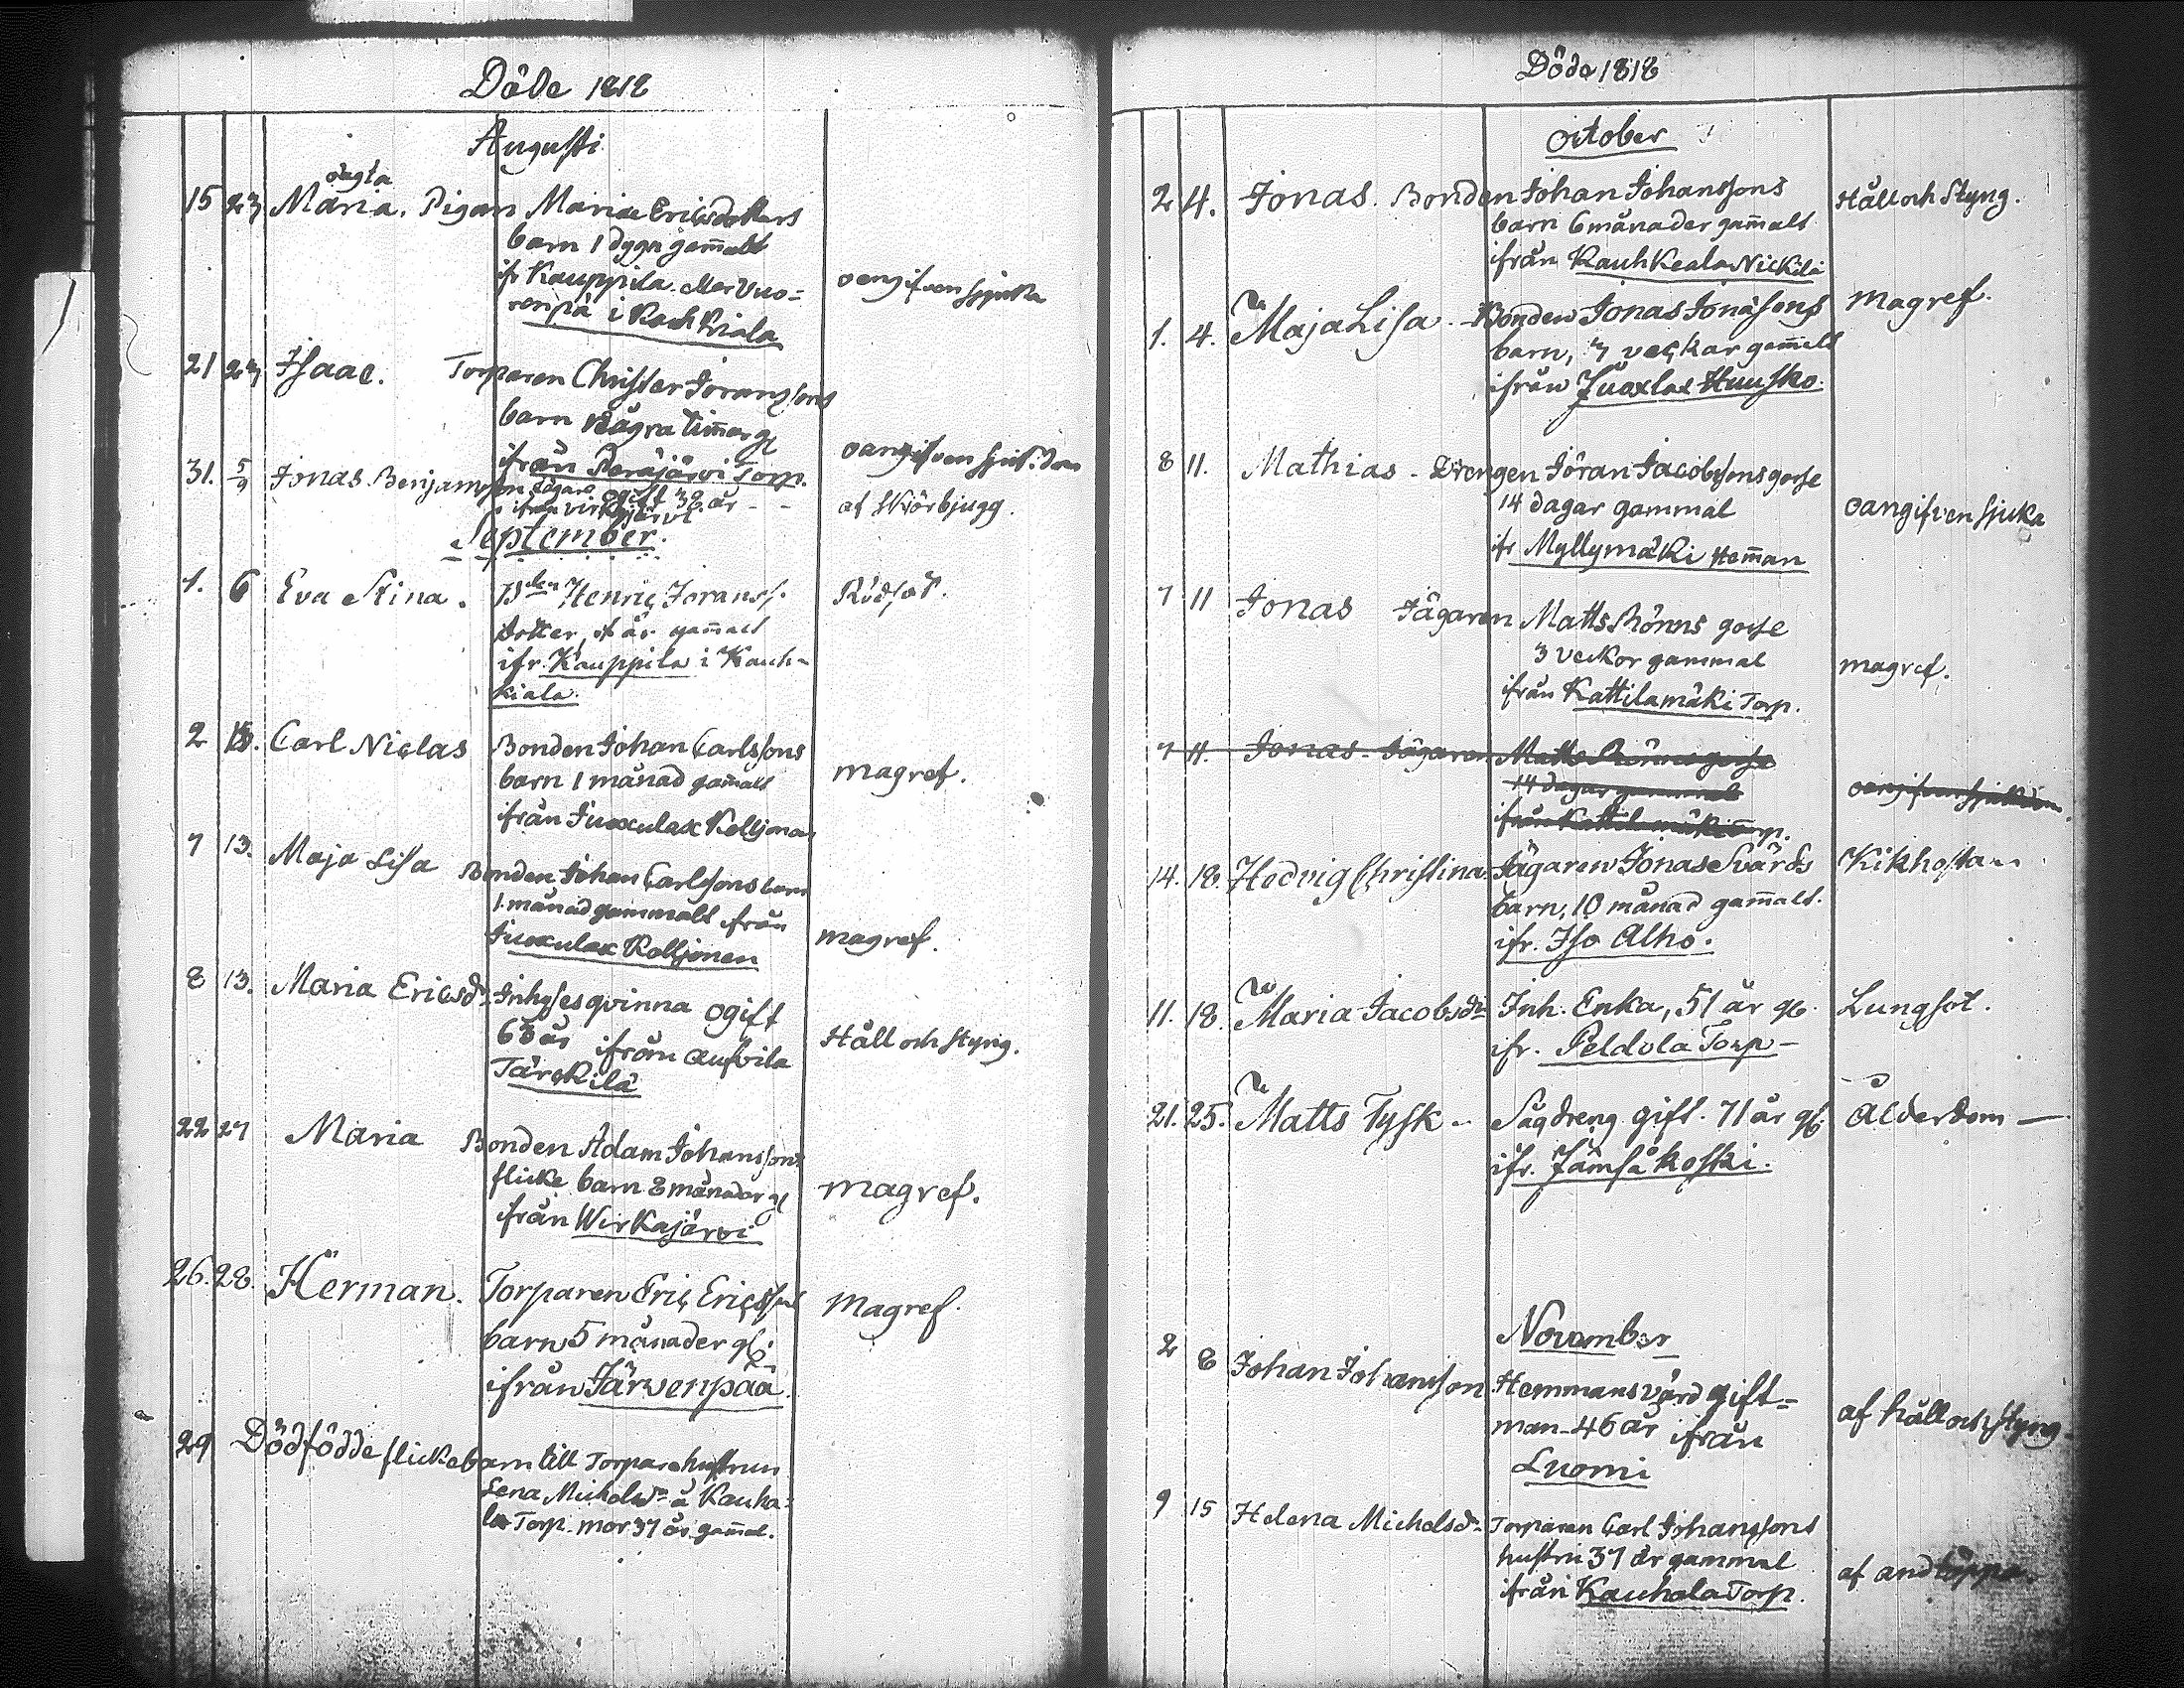 Döde 1818
Augusti
oägta
15 23 Maria. Pigan Maria Ericsdotters
barn 1 dygn gam̄alt
ifr Kauppila Mervuo=
renpä i Kauhkiala
oangifven sjuka
21 23 Isaac. Torparen Christer Joranssons
barn några tim̄ar gl
ifrån Peräjärvi Torp.
oangifven sjukdom
31. 5/9 Jonas Benjamsson Jägare ogift 38 år - -
ifrån Virkajärvi
af Skörbjugg.
September.
1. 6 Eva Stina. Bden Henric Joranss.
dotter, år gam̄alt
ifr. Kauppila i Kauh=
kiala.
Rödsot.
2 13. Carl Niclas Bonden Johan Carlssons
barn 1 månad gam̄alt
från Juoxulax Kolljonen
magref.
7 13. Maja Lisa Bonden Johan Carlssons barn
1. månad gammalt från
Juoxulax Kolljonen
magref.
8 13. Maria Ericsdr. Inhysesqvinna ogift
63 år ifrån Aufvila
Tärckilä
Håll och styng.
22 27 Maria Bonden Adam Johanssons
flicke barn 8 månader gl
ifrån Wirkajärvi
magref.
26. 28. Herman. Torparen Eric Ericssons
barn 5 månader gl.
ifrån Järwenpää.
Magref.
29 Dödfödde flickebarn till Torpare hustrun
Lena Michelsdr å Kauha=
la Torp. mor 37 år gam̄al.
Döda 1818
October
2 4. Jonas. Bonden Johan Johanssons
barn 6 månader gam̄alt
ifrån Kauhkeala Nickilä
Håll och Styng.
1. 4. Maja Lisa. Bonden Jonas Jonassons
barn, 3 veckor gam̄alt
ifrån Juoxlax Huusko.
Magref.
8 11. Mathias - Drengen Jöran Jacobssons gosse
14 dagar gammal
ifr Myllymäki Hem̄an
oangifven sjuka
7 11 Jonas Jägaren Matts Rönns gosse
3 veckor gammal
ifrån Kattilamäki Torp.
magref.
7 11. Jonas - Jägaren Matts Rönns gosse
14 dagar gammal
ifrån Kattilamäki Torp.
oangifven sjukdom
14. 18. Hedvig Christina. Jägaren Jonas Svärds
barn, 10 månad gam̄alt.
ifr. Iso Alho.
Kikhosta
11. 18. Maria Jacobsdr Inh. Enka, 51 år gl.
ifr. Peldola Torp -
Lungsot.
21. 25. Matts Tysk - Sågdreng gift. 71 år gl.
ifr. Jämsäkoski.
Ålderdom -
November
2 8 Johan Johansson Hemmansvärd gift=
man 46 år ifrån
Luomi
af håll och styng
9 15 Helena Michelsdr Torparen Carl Johanssons
hustru 37 år gammal
ifrån Kauhala Torp.
af andtäppa.